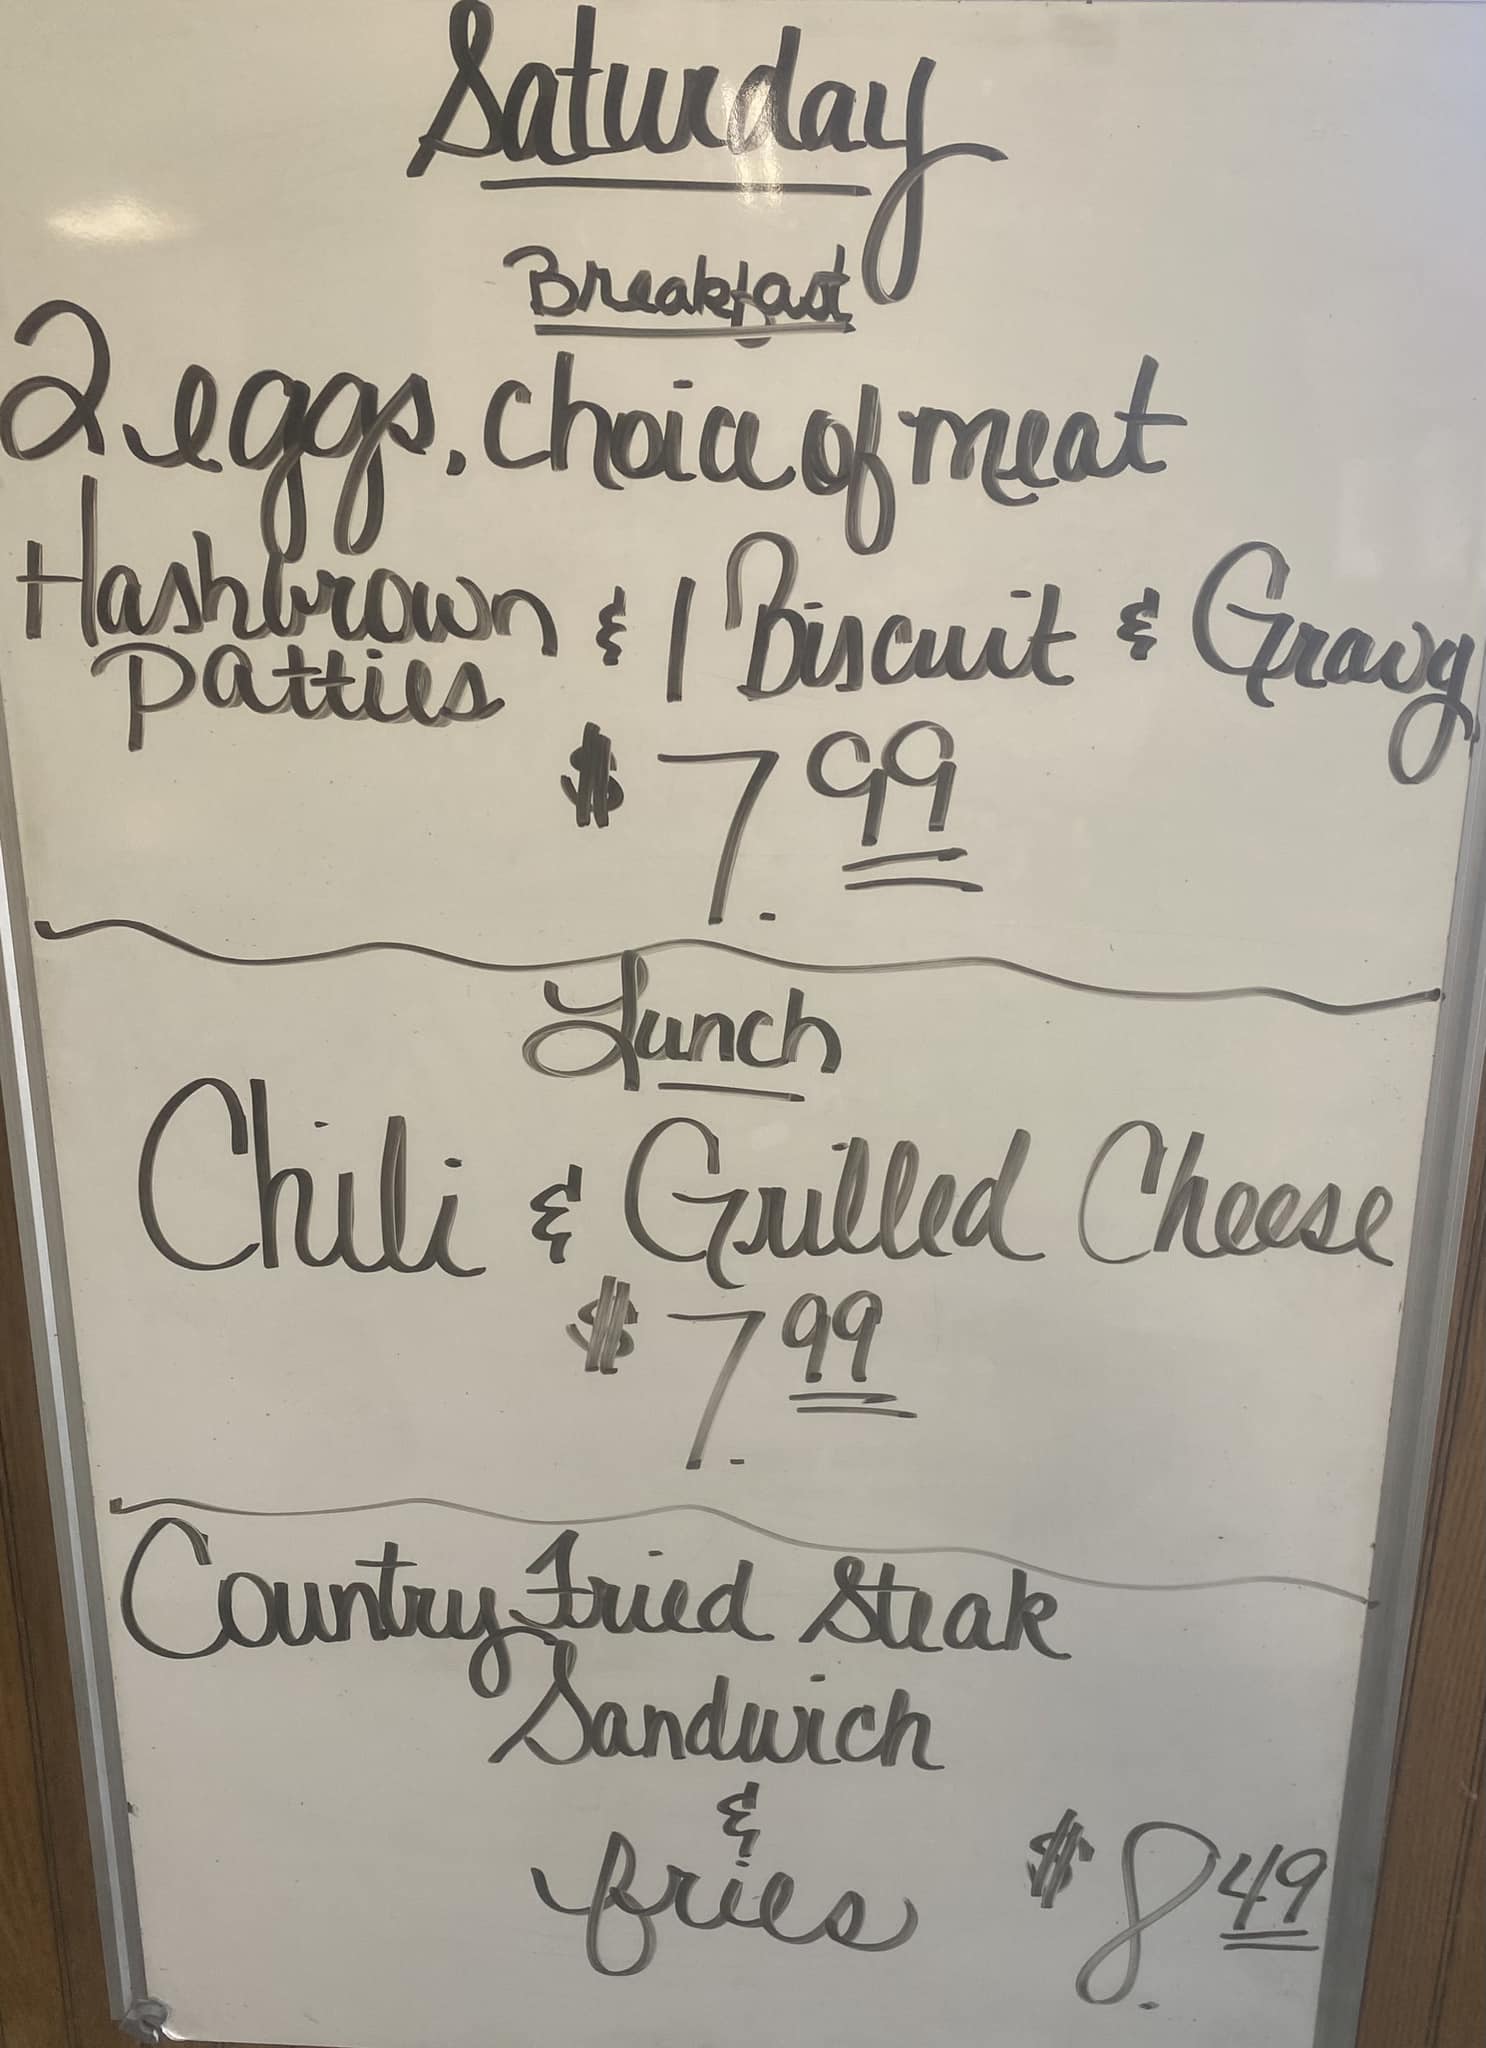 Saturday
Breakfast
2 eggs, choice of meat
Hashbrown & 1 Biscuit & Gravy
patties
$7.99
Lunch
Chili & Grilled Cheese
$7.99
Country Fried Steak
Sandwich
&
fries $8.49